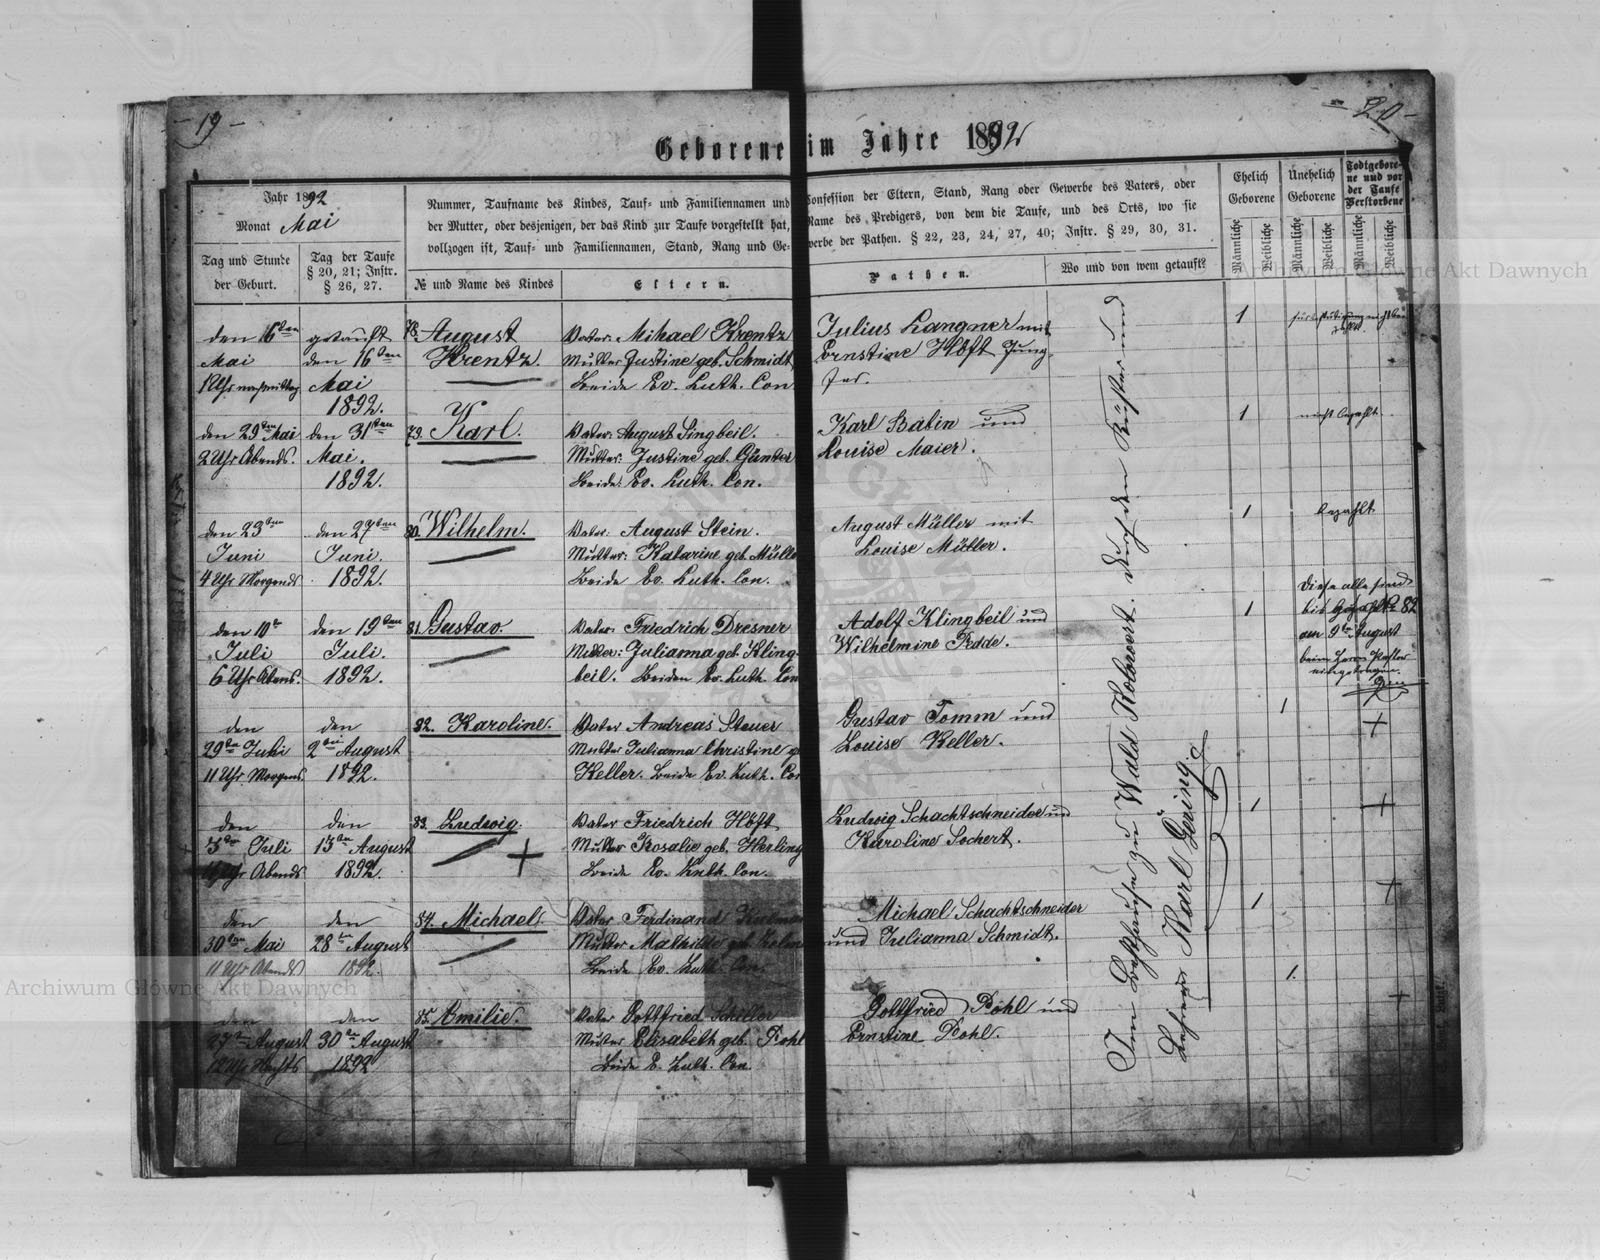 - 19 -
- 20 -
Geborene im Jahre 1892
Jahr 1892
Monat Mai
Tag und Stunde
der Geburt.
Tag der Taufe
§ 20, 21; Instr.
§ 26, 27.
Nummer, Taufname des Kindes, Tauf- und Familiennamen und
der Mutter, oder desjenigen, der das Kind zur Taufe vorgestellt hat,
vollzogen ist, Tauf- und Familiennamen, Stand, Rang und Ge-
№ und Name des Kindes
Eltern.
Confession der Eltern, Stand, Rang oder Gewerbe des Vaters, oder
Name des Predigers, von dem die Taufe, und des Orts, wo sie
werbe der Pathen. § 22, 23, 24, 27, 40; Instr. § 29, 30, 31.
Pathen.
Wo und von wem getauft?
Ehelich
Geborene
Unehelich
Geborene
Todtgebore-
ne und vor
der Taufe
Verstorbene
Männliche
Weibliche
Männliche
Weibliche
Männliche
Weibliche
den 16ten
Mai
1 Uhr nachmittag
getauft
den 16ten
Mai
1892.
78. August
Krentz.
Vater: Mihael Krentz
Mutter Justine geb. Schmidt
Beide Ev. Luth. Con
Julius Langner mit
Ernstine Höft Jung-
fer.
1
den 29ten Mai
2 Uhr Abends.
den 31ten
Mai.
1892.
79. Karl.
Vater: August Singbeil.
Mutter: Justine geb. Günter
Beide: Ev. Luth. Con.
Karl Babin und
Louise Maier.
1
nicht bezahlt
den 23ten
Juni
4 Uhr Morgends
den 27ten
Juni.
1892.
80. Wilhelm.
Vater: August Stein.
Mutter: Katarine geb. Mülle
Beide Ev. Luth. Con.
August Müller mit
Louise Müller.
1
bezahlt
den 10te
Juli
6 Uhr Abens.
den 19ten
Juli.
1892.
81. Gustav.
Vater: Friedrich Dresner
Mutter: Julianna geb. Kling-
beil. Beiden Ev. Luth. Con
Adolf Klingbeil und
Wilhelmine Radde.
1
Diese alle sind
bis № 82
am 9ten August
beim Herrn Pastor
den
29ten Juli
11 Uhr Morgens
den
2ten August
1892.
82. Karoline.
Vater Andreas Steuer
Mutter Julianna Christine g
Keller. Beide Ev. Luth. Con
Gustav Tomm und
Louise Keller.
1
den
Juli
Uhr Abends
den
13ten August
1892.
83. Ludwig.
Vater Friedrich Höft
Mutter Rosalie geb. Herling
Beide Ev. Luth. Con.
Ludwig Schachtschneider und
Karoline Sochert.
1
den
30ten Mai
11 Uhr Abends
den
28ten August
1892.
84. Michael.
Vater Ferdinand
Mutter Mathilde geb.
Beide Ev. Luth. Con.
Michael Schachtschneider
und Julianna Schmidt.
1
den
27ten August
12 Uhr Nachts
den
30ten August
1892
85. Emilie.
Vater Gottfried Schiller
Mutter Elisabeth geb. Pohl
Beide E. Luth. Con.
Gottfried Pohl und
Ernstine Pohl.
1.
Im Bethause zu Wald Koborort. durch den Küster und
Lehrer Karl Göring.
Archiwum Główne Akt Dawnych
Archiwum Główne Akt Dawnych